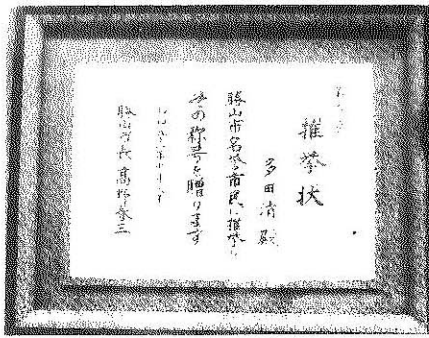 推挙状
多田清殿
勝山市名誉市民に推挙し
その称号を贈ります
勝山市長